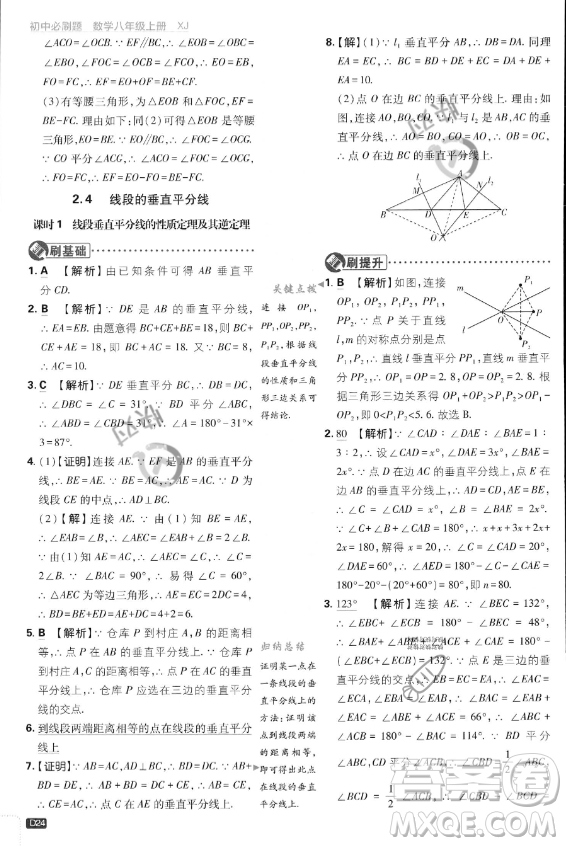 初中必刷题 数学八年级上册 XJ
∠ACO=∠FCO, ∴ ∠EBO=∠EOB,
∴ EO=BE, ∠FOC=∠FCO, ∴ FO=FC,
∴ EF=EO+FO=BE+CF.
(3)有等腰三角形,为△EOB 和△FOC,EF=
BE-FC. 理由如下:同(1)可证△EOB 是等腰
三角形,EO=BE. ∵ EO∥BC, ∴ ∠FOC=∠OCG.
∵ CO 平分∠ACG, ∴ ∠ACO=∠OCG=∠FOC,
∴ FO=FC, ∴ EF=EO-FO=BE-FC.
2.4 线段的垂直平分线
课时1 线段垂直平分线的性质定理及其逆定理
刷基础
1. A 【解析】由已知条件可得 AB 垂直平
分 CD.
2. B 【解析】∵ DE 是 AB 的垂直平分线,
∴ EA=EB. 由题意得 BC+CE+BE=18,则 BC+
CE+AE=18,即 BC+AC=18. 又∵ BC=8,
∴ AC=10.
3. C 【解析】∵ DE 垂直平分线段 BC,
∴ ∠DBC=∠C=31°. ∵ BD 平分∠ABC,
∴ ∠ABD=∠CBD=31°, ∴ ∠A=180°-31°×
3=87°.
4. (1)【证明】连接 AE. ∵ EF 是 AB 的垂直平分
线,∴ AE=BE. ∵ BE=AC, ∴ AE=AC. ∵ D 为
线段 CE 的中点,∴ AD⊥BC.
(2)【解】连接 AE. ∵ 由(1)知 BE=AE,
∴ ∠BAE=∠B. ∵ 由(1)知 AE=AC,
∴ ∠AEC=∠C, ∴ ∠AEC=∠C=2∠B.
∵ ∠BAC=90°, ∴ 易得∠C=60°,
∴ △AEC 为等边三角形, ∴ AC=AE=BE=
CE=6, ∴ BC=BE+CE=12.
5. B 【解析】∵ 仓库 P 到村庄 A,B 的距离相
等,∴ 点 P 在 AB 的垂直平分线上. ∵ 仓库 P
到村庄 A,C 的距离相等,∴ 点 P 在 AC 的垂直
平分线上,∴ 仓库 P 应选在三边的垂直平分
线的交点处.
6. 到线段两端距离相等的点在线段的垂直平分
线上
7. 【证明】∵ AB=AC,AD⊥BC, ∴ BD=DC. ∵ AB+
BD=DE, ∴ AC+CD=DE. ∵ DE=CD+CE,
∴ CE=AC, ∴ 点 C 在线段 AE 的垂直平分线上.
D24
关键点拨
连接 OP₁,
OP₂,P₁P₂,
OP,根据线
段垂直平分线
的性质和三角
形三边关系可
得结论.
归纳总结
证明某一点在
一条线段的垂
直平分线上的
方法:证明该
点到线段两端
的距离相等,
即可得出此点
在该线段的垂
直平分线上.
8. 【解】(1)∵ l₁ 垂直平分 AB, ∴ DB=DA. 同理
EA=EC, ∴ BC=BD+DE+EC=DA+DE+
EA=5.
(2)点 O 在边 BC 的垂直平分线上. 理由:如图,
连接 AO,BO,CO. ∵ l₁ 与 l₂ 是 AB,AC 的垂
直平分线,∴ AO=BO,CO=AO, ∴ OB=OC,
∴ 点 O 在边 BC 的垂直平分线上.
l₁ A l₂
M N
B D E C
O
刷提升
1. B 【解析】如图,连接
OP₁,OP₂,P₁P₂,OP.
∵ 点 P 关于直线
l,m 的对称点分别是点
P₁,P₂, ∴ 直线 l 垂直平分 PP₁,直线 m 垂直
平分 PP₂, ∴ OP₁=OP=2.8,OP=OP₂=2.8.
由三角形三边关系得 OP₁+OP₂>P₁P₂,P₁P₂>
0, ∴ 即 0<P₁P₂<5.6. 故选 B.
l P₁
O P
m P₂
2. 80 【解析】∵ ∠CAD:∠DAE:∠BAE=1:
3:2, ∴ 设∠CAD=x°,∠DAE=3x°,∠BAE=
2x°. ∵ 点 D 在边 AC 的垂直平分线上,点 E 在
边 AB 的垂直平分线上,∴ AD=CD,BE=AE,
∴ ∠C=∠CAD=x°,∠B=∠BAE=2x°.
∵ ∠C+∠B+∠CAB=180°, ∴ x+x+3x+2x+
2x=180,解得 x=20, ∴ ∠C=∠CAD=20°,
∠DAE=60°, ∴ ∠AED=180°-∠DAE-∠C-
∠CAD=180°-60°-20°-20°=80°,即 n=80.
3. 123° 【解析】连接 AE. ∵ ∠BEC=132°,
∴ ∠EBC+∠ECB=180°-∠BEC=48°,
∴ ∠ABE+∠ACE=180°-∠BAC-
(∠EBC+∠ECB)=132°-∠BAC. ∵ 点 E 是三边的垂
直平分线的交点,∴ AE=BE,AE=CE, ∴ ∠BAE=
∠ABE,∠CAE=∠ACE, ∴ ∠BAC=∠BAE+
∠CAE=∠ABE+∠ACE=66°, ∴ ∠ABC+
∠ACB=180°-∠BAC=114°. ∵ BD 平分
∠ABC,CD 平分∠ACB, ∴ ∠DBC=1/2∠ABC,
∠BCD=1/2